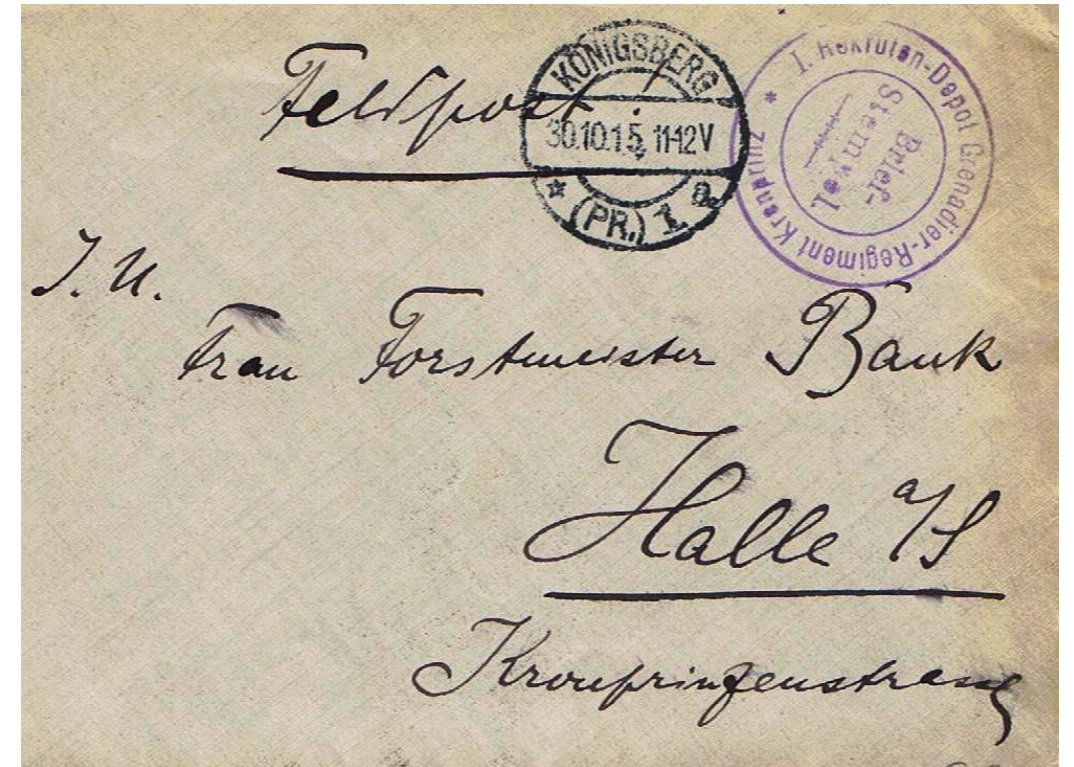 Feldpost.
KÖNIGSBERG
30.10.15. 11-12V
* (PR.) 1 a.
* I. Rekruten-Depot Grenadier-Regiment Kronprinz
Brief-
Stempel
I. H.
Frau Forstmeister Bank
Halle a/S
Kronprinzenstrasse